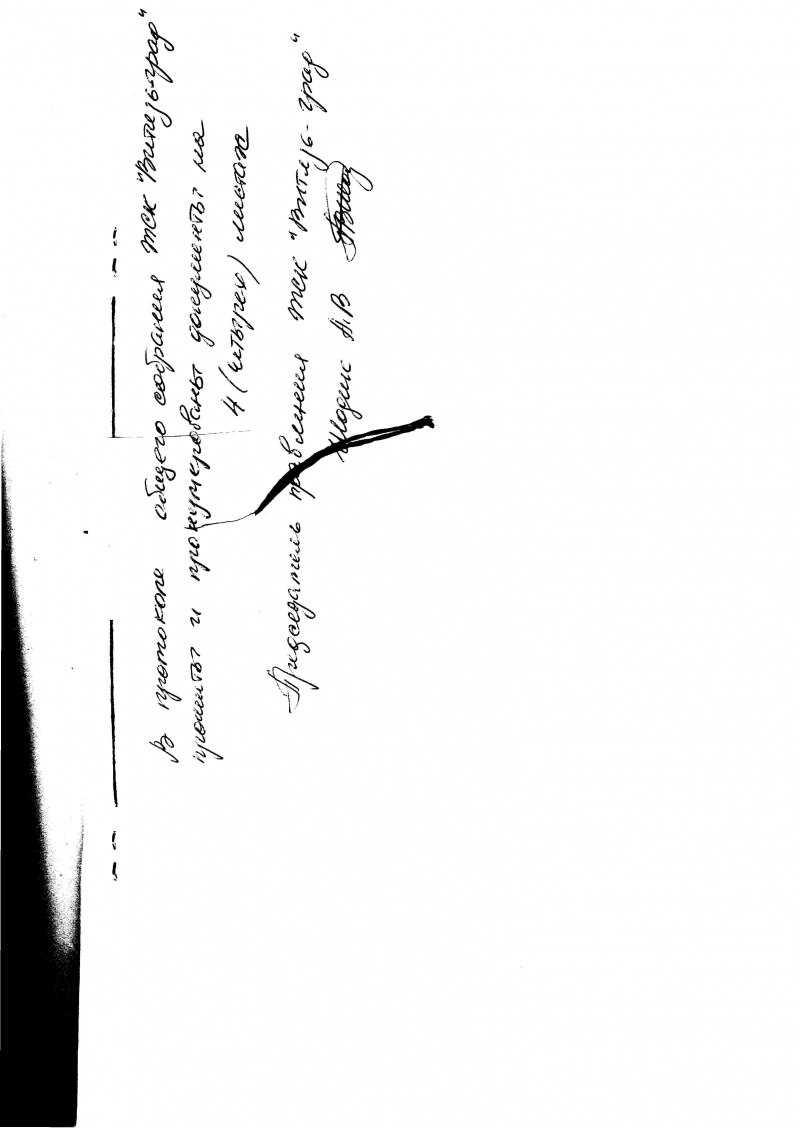 В протоколе общего собрания ЖСК "Витязь-град"
прошиты и пронумерованы документы на
4 (четырех) листах
Председатель правления ЖСК "Витязь-град"
А.В